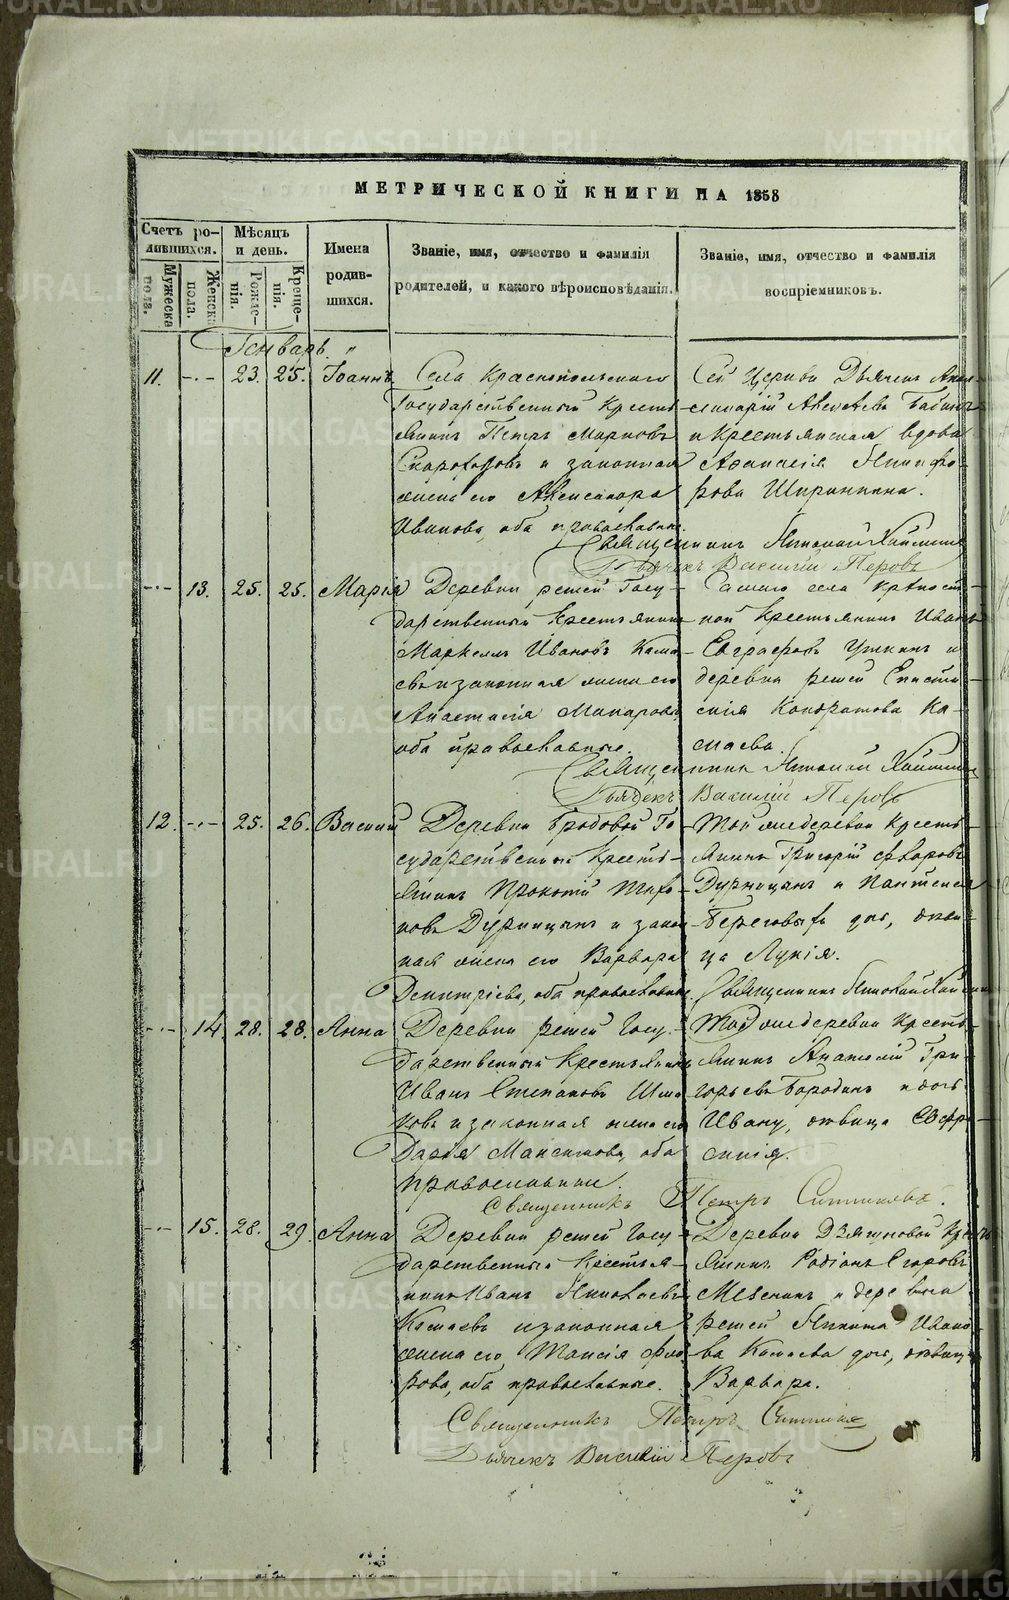 МЕТРИЧЕСКОЙ КНИГИ НА 1858
Счетъ ро-
дившихся.
Мужеска
пола.
Женска
пола.
Мѣсяцъ
и день.
Рожде-
нія.
Креще-
нія.
Имена
родив-
шихся.
Званіе, имя, отчество и фамилія
родителей, и какого вѣроисповѣданія.
Званіе, имя, отчество и фамилія
воспріемниковъ.
Генварь
11. 23. 25. Іоаннъ
Села Краснопольскаго
Государственный Кресть-
янинъ Петръ Марковъ
и законная
жена его Александра
Иванова, оба православные.
Сей Церкви Дьячекъ Апол-
линарій Алексѣевъ Бабинъ
и Крестьянская вдова
Афанасія Никифо-
рова Ширинкина.
Священникъ Николай
Дьячекъ Василій Перовъ
13. 25. 25. Марія
Деревни Решей Госу-
дарственный Крестьянинъ
Маркеллъ Ивановъ Кома-
евъ и законная жена его
Анастасія Макарова
оба православные.
села крѣпост-
ной Крестьянинъ Иванъ
Евграфовъ и
деревни Решей Еписти-
мія Кондратова Ко-
маева.
Священникъ Николай
Дьячекъ Василій Перовъ
12. 25. 26. Василій
Деревни Бродовой Го-
сударственный Кресть-
янинъ Прокопій Тихо-
новъ Дурницынъ и закон-
ная жена его Варвара
Димитріева, оба православные
Той же деревни Кресть-
янинъ Григорій Ѳедоровъ
Дурницынъ и Пантелея
Береговыхъ дочь, дѣви-
ца Лукія.
Священникъ Николай
14. 28. 28. Анна
Деревни Решей Госу-
дарственный Крестьянинъ
Иванъ Степановъ
и законная жена его
Дарья Максимова, оба
православные.
Той же деревни Кресть-
янинъ Анатолій Гри-
горьевъ Бородинъ и дочь
Ивану, дѣвица Евфро-
синія.
Священникъ Петръ
15. 28. 29. Анна
Деревни Решей Госу-
дарственный Крестья-
нинъ Иванъ Николаевъ
Комаевъ и законная
жена его Таисія Фло-
рова, оба православные.
Деревни Крестья-
янинъ Родіонъ Егоровъ
и деревни
Решей Никита Ивано-
ва Комаева дочь, дѣвица
Варвара.
Священникъ Петръ
Дьячекъ Василій Перовъ
METRIKI.GASO-URAL.RU